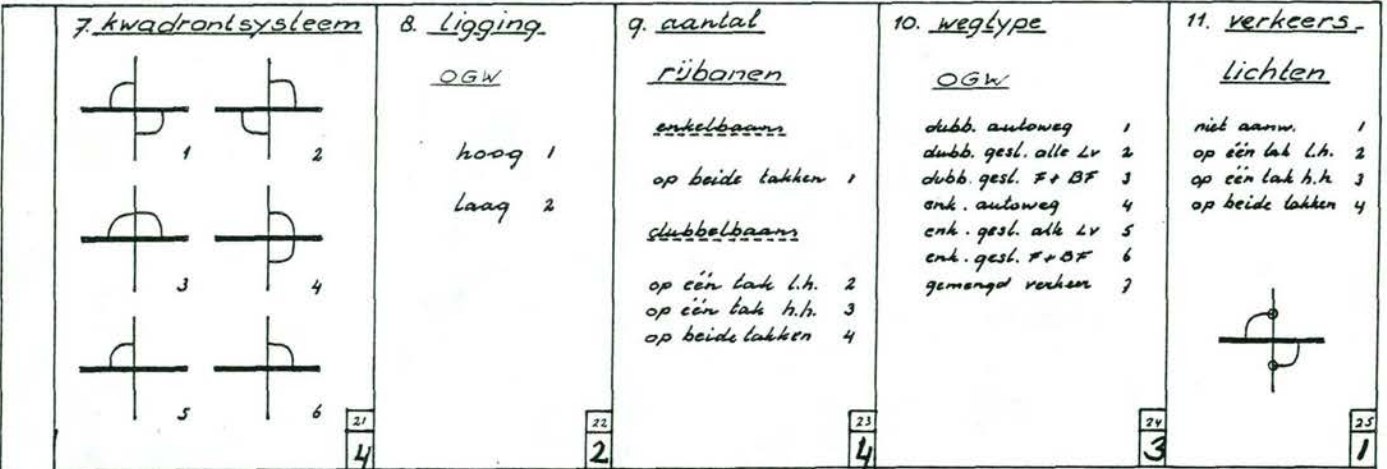 7. kwadrantsysteem
1 2
3 4
5 6
21
4
8. ligging
OGW
hoog 1
laag 2
22
2
9. aantal
rijbanen
enkelbaans
op beide takken 1
dubbelbaans
op één tak l.h. 2
op één tak h.h. 3
op beide takken 4
23
4
10. wegtype
OGW
dubb. autoweg 1
dubb. gesl. alle Lv 2
dubb. gesl. F + BF 3
enk. autoweg 4
enk. gesl. alle Lv 5
enk. gesl. F + BF 6
gemengd verkeer 7
24
3
11. verkeers-
lichten
niet aanw. 1
op één tak l.h. 2
op één tak h.h 3
op beide takken 4
25
1